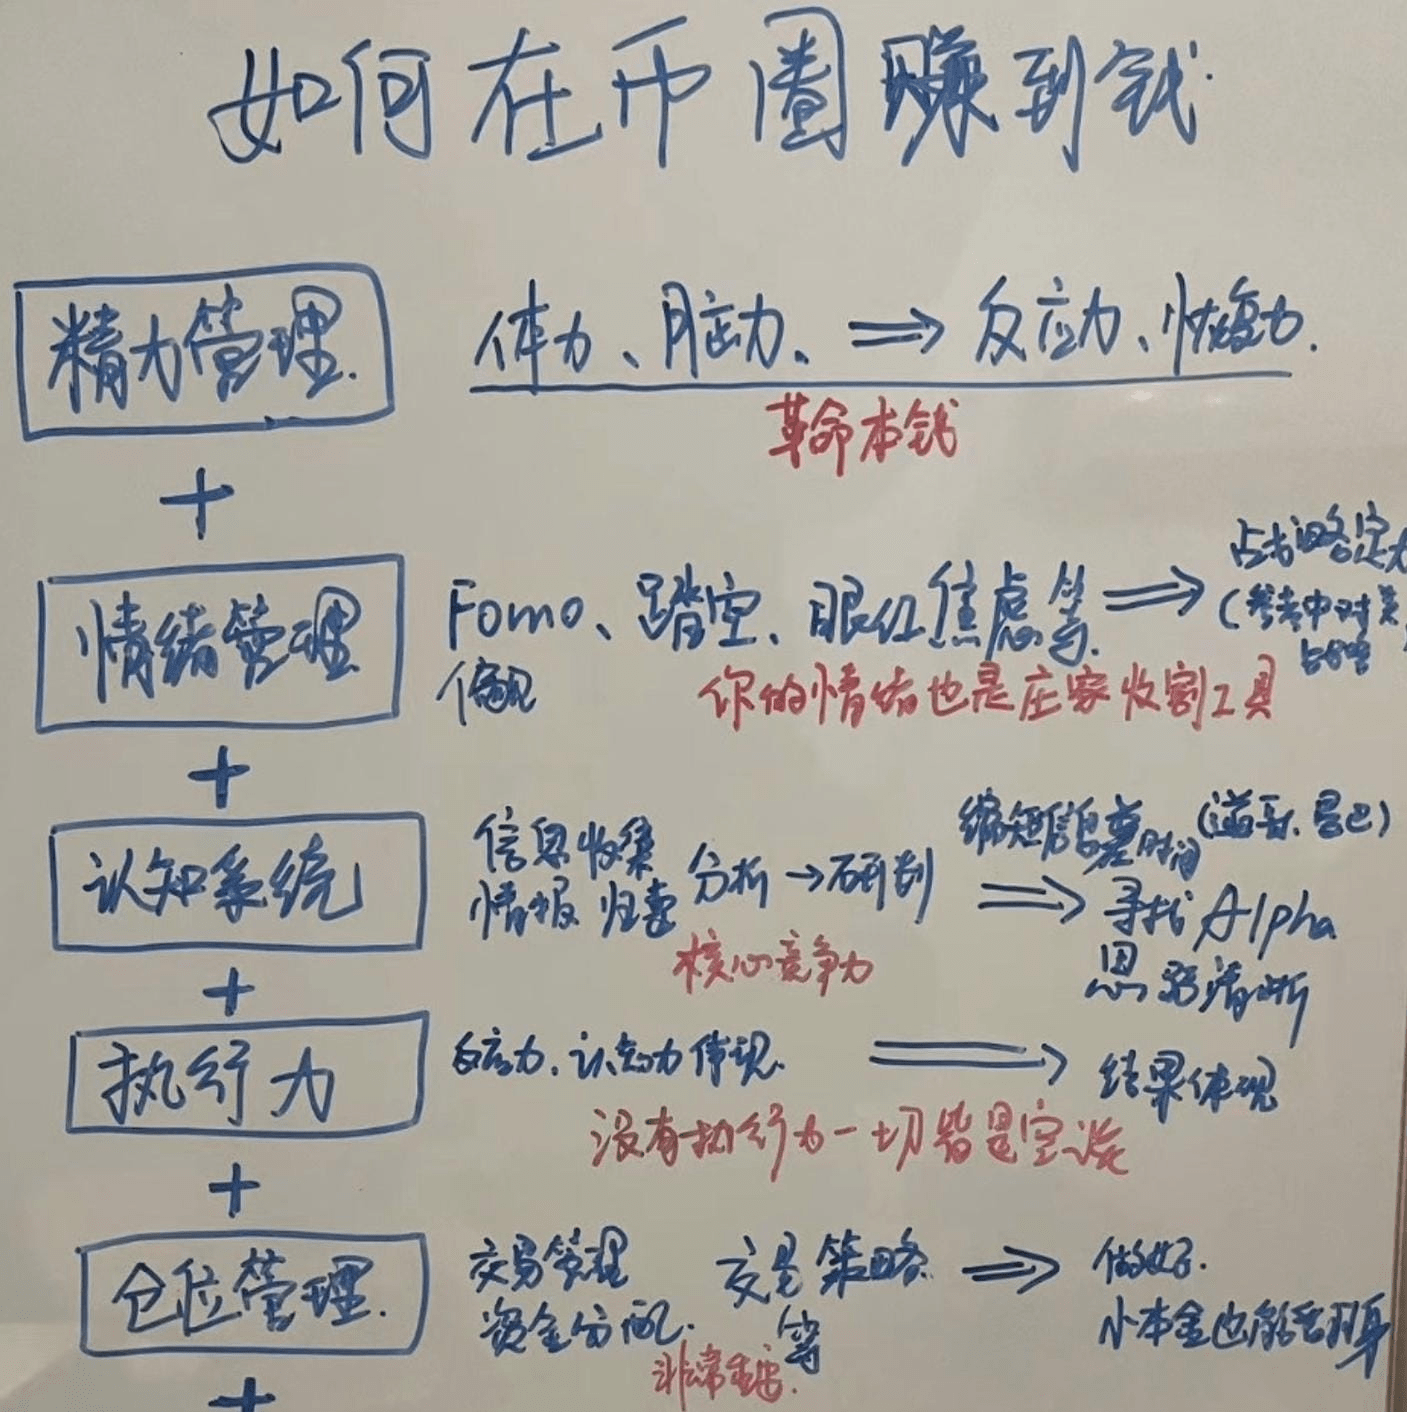 如何在币圈赚到钱.
精力管理.
体力、脑力、⇒反应力、恢复力.
革命本钱
+
情绪管理
Fomo、踏空、眼红焦虑等.⇒
偏见
占战略定
(参考中对美
你的情绪也是庄家收割工具
+
认知系统
信息收集
情报归集
分析→研判⇒
缩短信息差时间
寻找Alpha
思路清晰
核心竞争力
+
执行力
反应力.认知力体现.⇒结果体现
没有执行力一切皆是空谈
+
仓位管理.
交易管理
资金分配.
交易策略
等
⇒做好.
小本金也能翻身
非常重要.
+